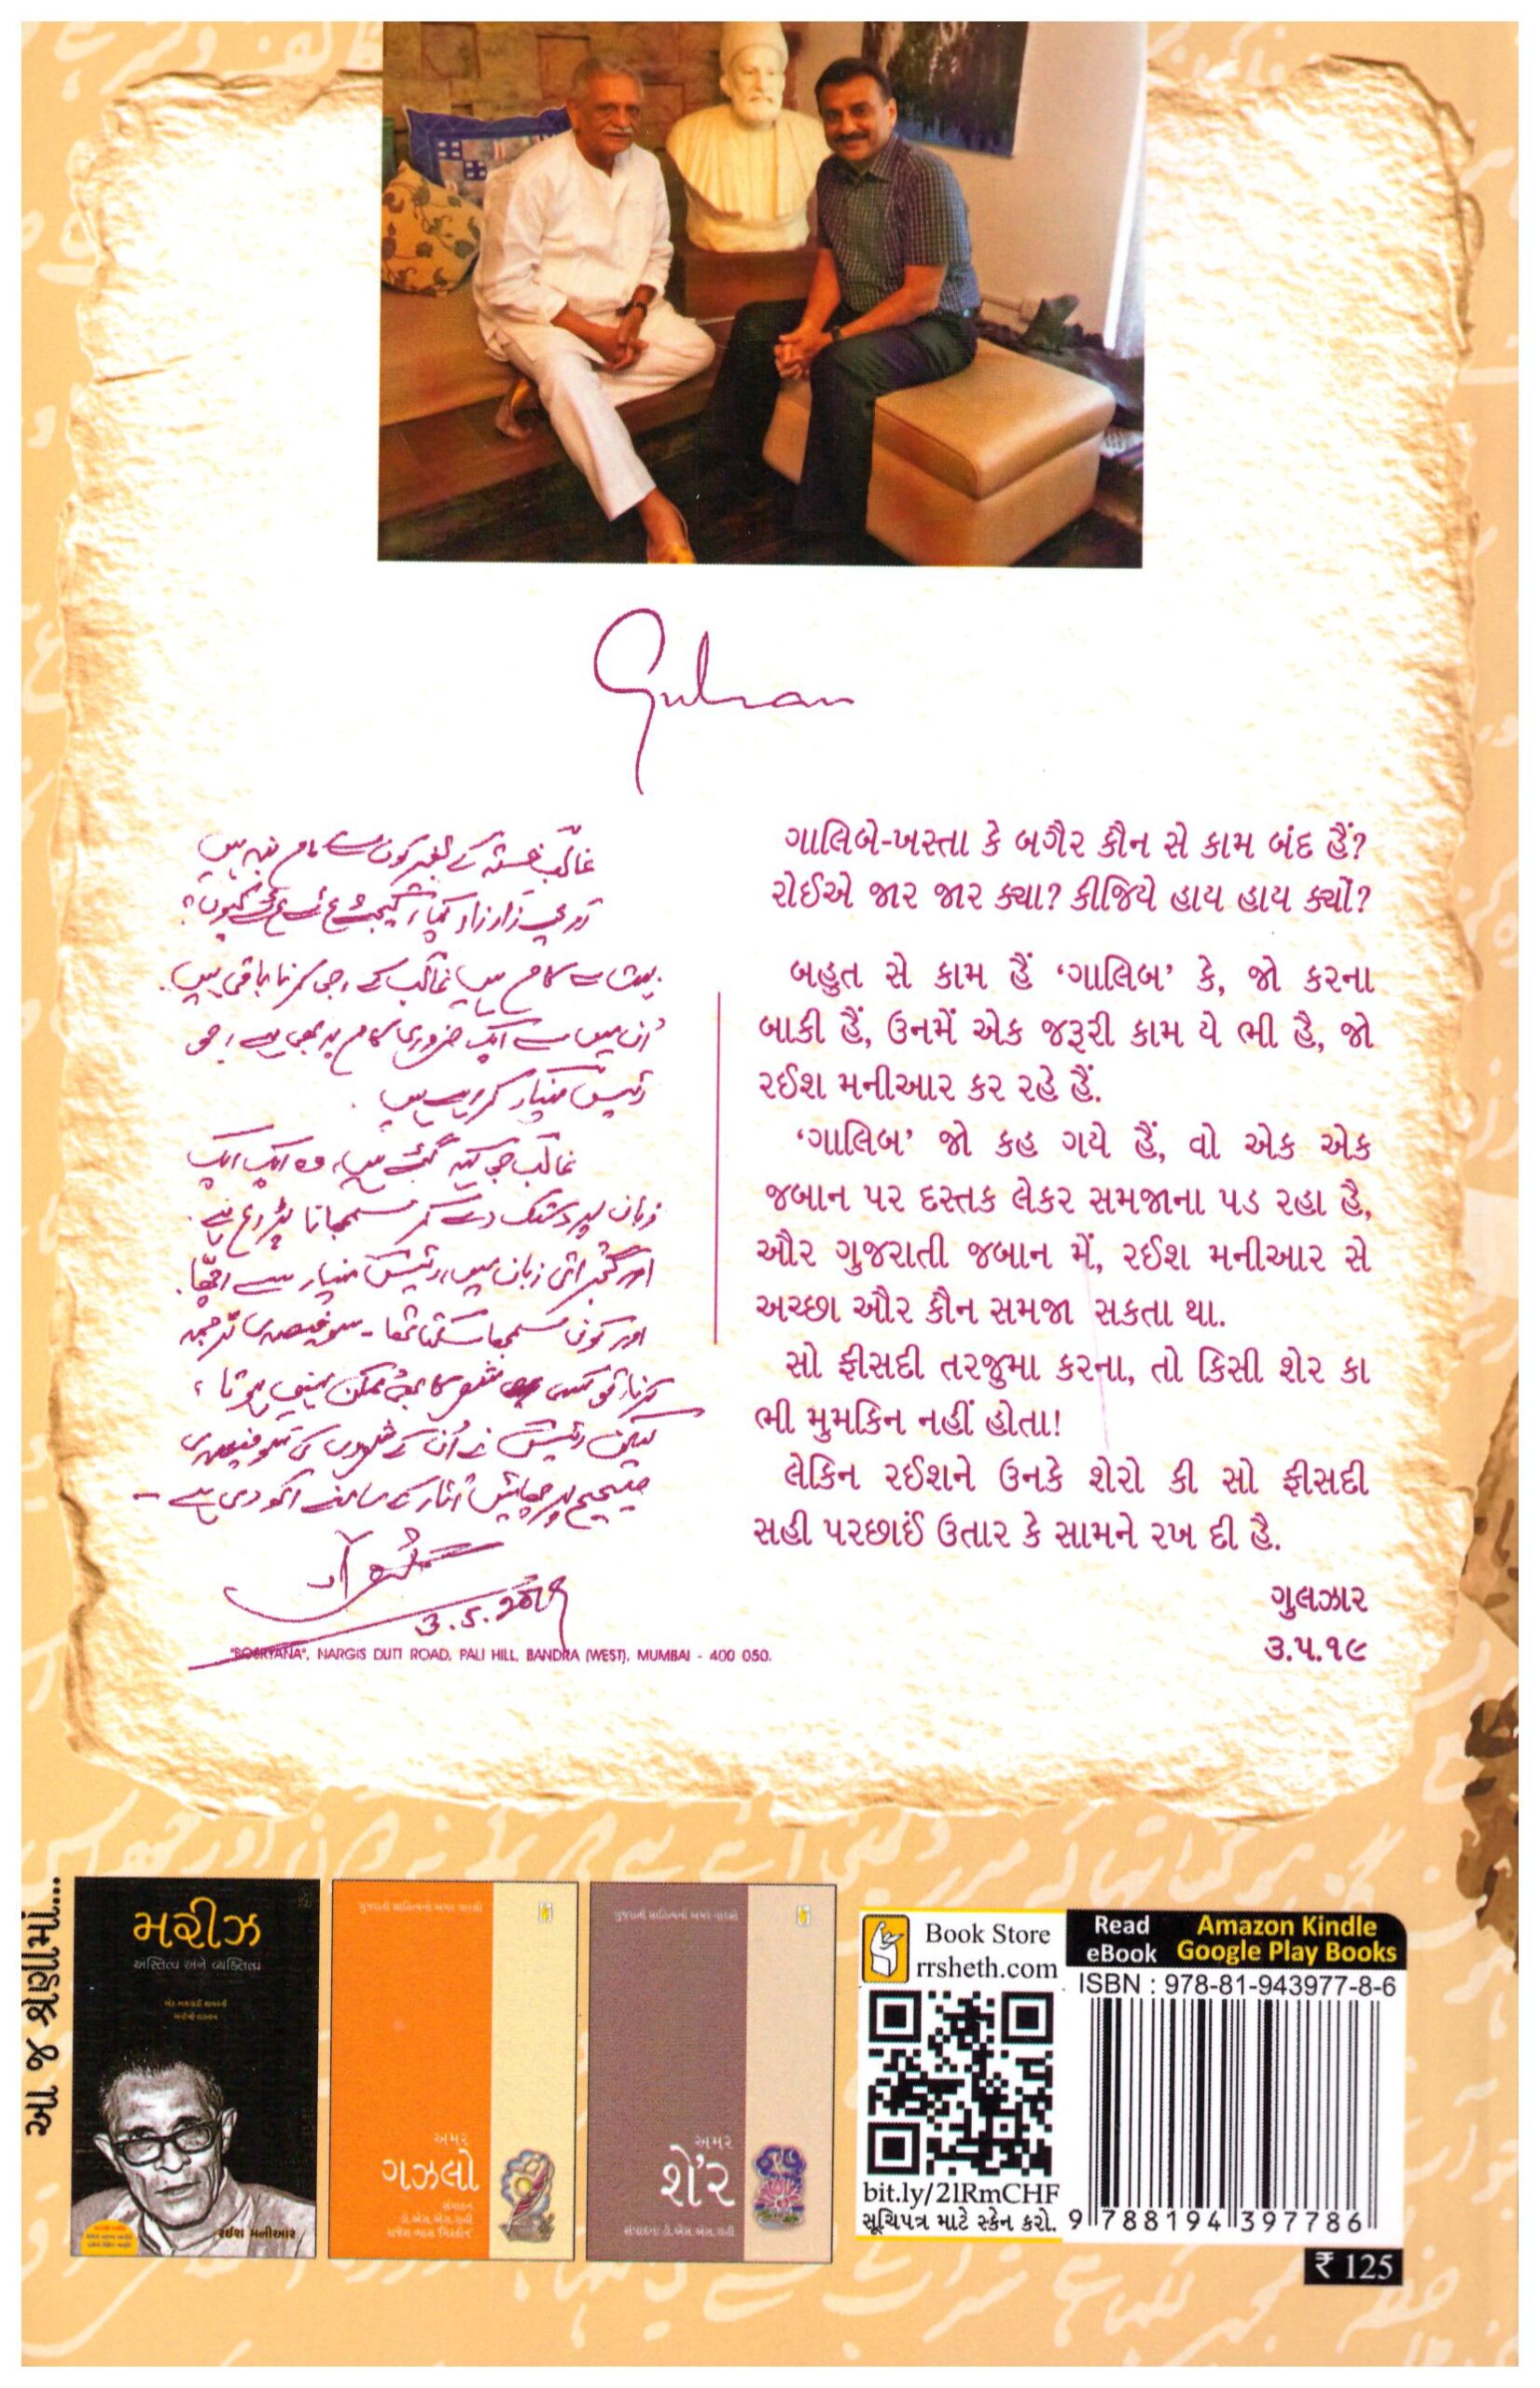 Gulzar
غالبِ خستہ کے بغیر کون سے کام بند ہیں
روئیے زار زار کیا، کیجئے ہائے ہائے کیوں؟
بہت سے کام ہیں غالب کے، جو کرنا باقی ہیں۔
اُن میں سے ایک ضروری کام یہ بھی ہے، جو
رئیش منیار کر رہے ہیں۔
غالب جو کہہ گئے ہیں، وہ ایک ایک
زبان پر دستک دے کر سمجھانا پڑ رہا ہے۔
اور گجراتی زبان میں، رئیش منیار سے اچھّا
اور کون سمجھا سکتا تھا۔ سو فیصدی ترجمہ
کرنا، تو کسی شعر کا بھی ممکن نہیں ہوتا،
لیکن رئیش نے اُن کے شعروں کی سو فیصدی
صحیح پرچھائیں اُتار کے سامنے رکھ دی ہے۔
3.5.2019
"BOSKYANA", NARGIS DUTT ROAD, PALI HILL, BANDRA (WEST), MUMBAI - 400 050.
ગાલિબે-ખસ્તા કે બગૈર કૌન સે કામ બંદ હૈં?
રોઈએ જાર જાર ક્યા? કીજિયે હાય હાય ક્યોં?
બહુત સે કામ હૈં ‘ગાલિબ’ કે, જો કરના
બાકી હૈં, ઉનમેં એક જરૂરી કામ યે ભી હૈ, જો
રઈશ મનીઆર કર રહે હૈં.
‘ગાલિબ’ જો કહ ગયે હૈં, વો એક એક
જબાન પર દસ્તક લેકર સમજાના પડ રહા હૈ,
ઔર ગુજરાતી જબાન મેં, રઈશ મનીઆર સે
અચ્છા ઔર કૌન સમજા સકતા થા.
સો ફીસદી તરજુમા કરના, તો કિસી શેર કા
ભી મુમકિન નહીં હોતા!
લેકિન રઈશને ઉનકે શેરો કી સો ફીસદી
સહી પરછાઈં ઉતાર કે સામને રખ દી હૈ.
ગુલઝાર
૩.૫.૧૯
આ જ શ્રેણીમાં...
મરીઝ
અસ્તિત્વ અને વ્યક્તિત્વ
રઈશ મનીઆર
ગુજરાતી સાહિત્યનો અમર વારસો
અમર
ગઝલો
સંપાદન
ડૉ. એસ. એસ. રાહી
રાજેશ વ્યાસ ‘મિસ્કીન’
ગુજરાતી સાહિત્યનો અમર વારસો
અમર
શે’ર
સંપાદન: ડૉ. એસ. એસ. રાહી
Book Store
rrsheth.com
bit.ly/2lRmCHF
સૂચિપત્ર માટે સ્કેન કરો.
Read eBook
Amazon Kindle
Google Play Books
ISBN : 978-81-943977-8-6
9 788194 397786
₹ 125